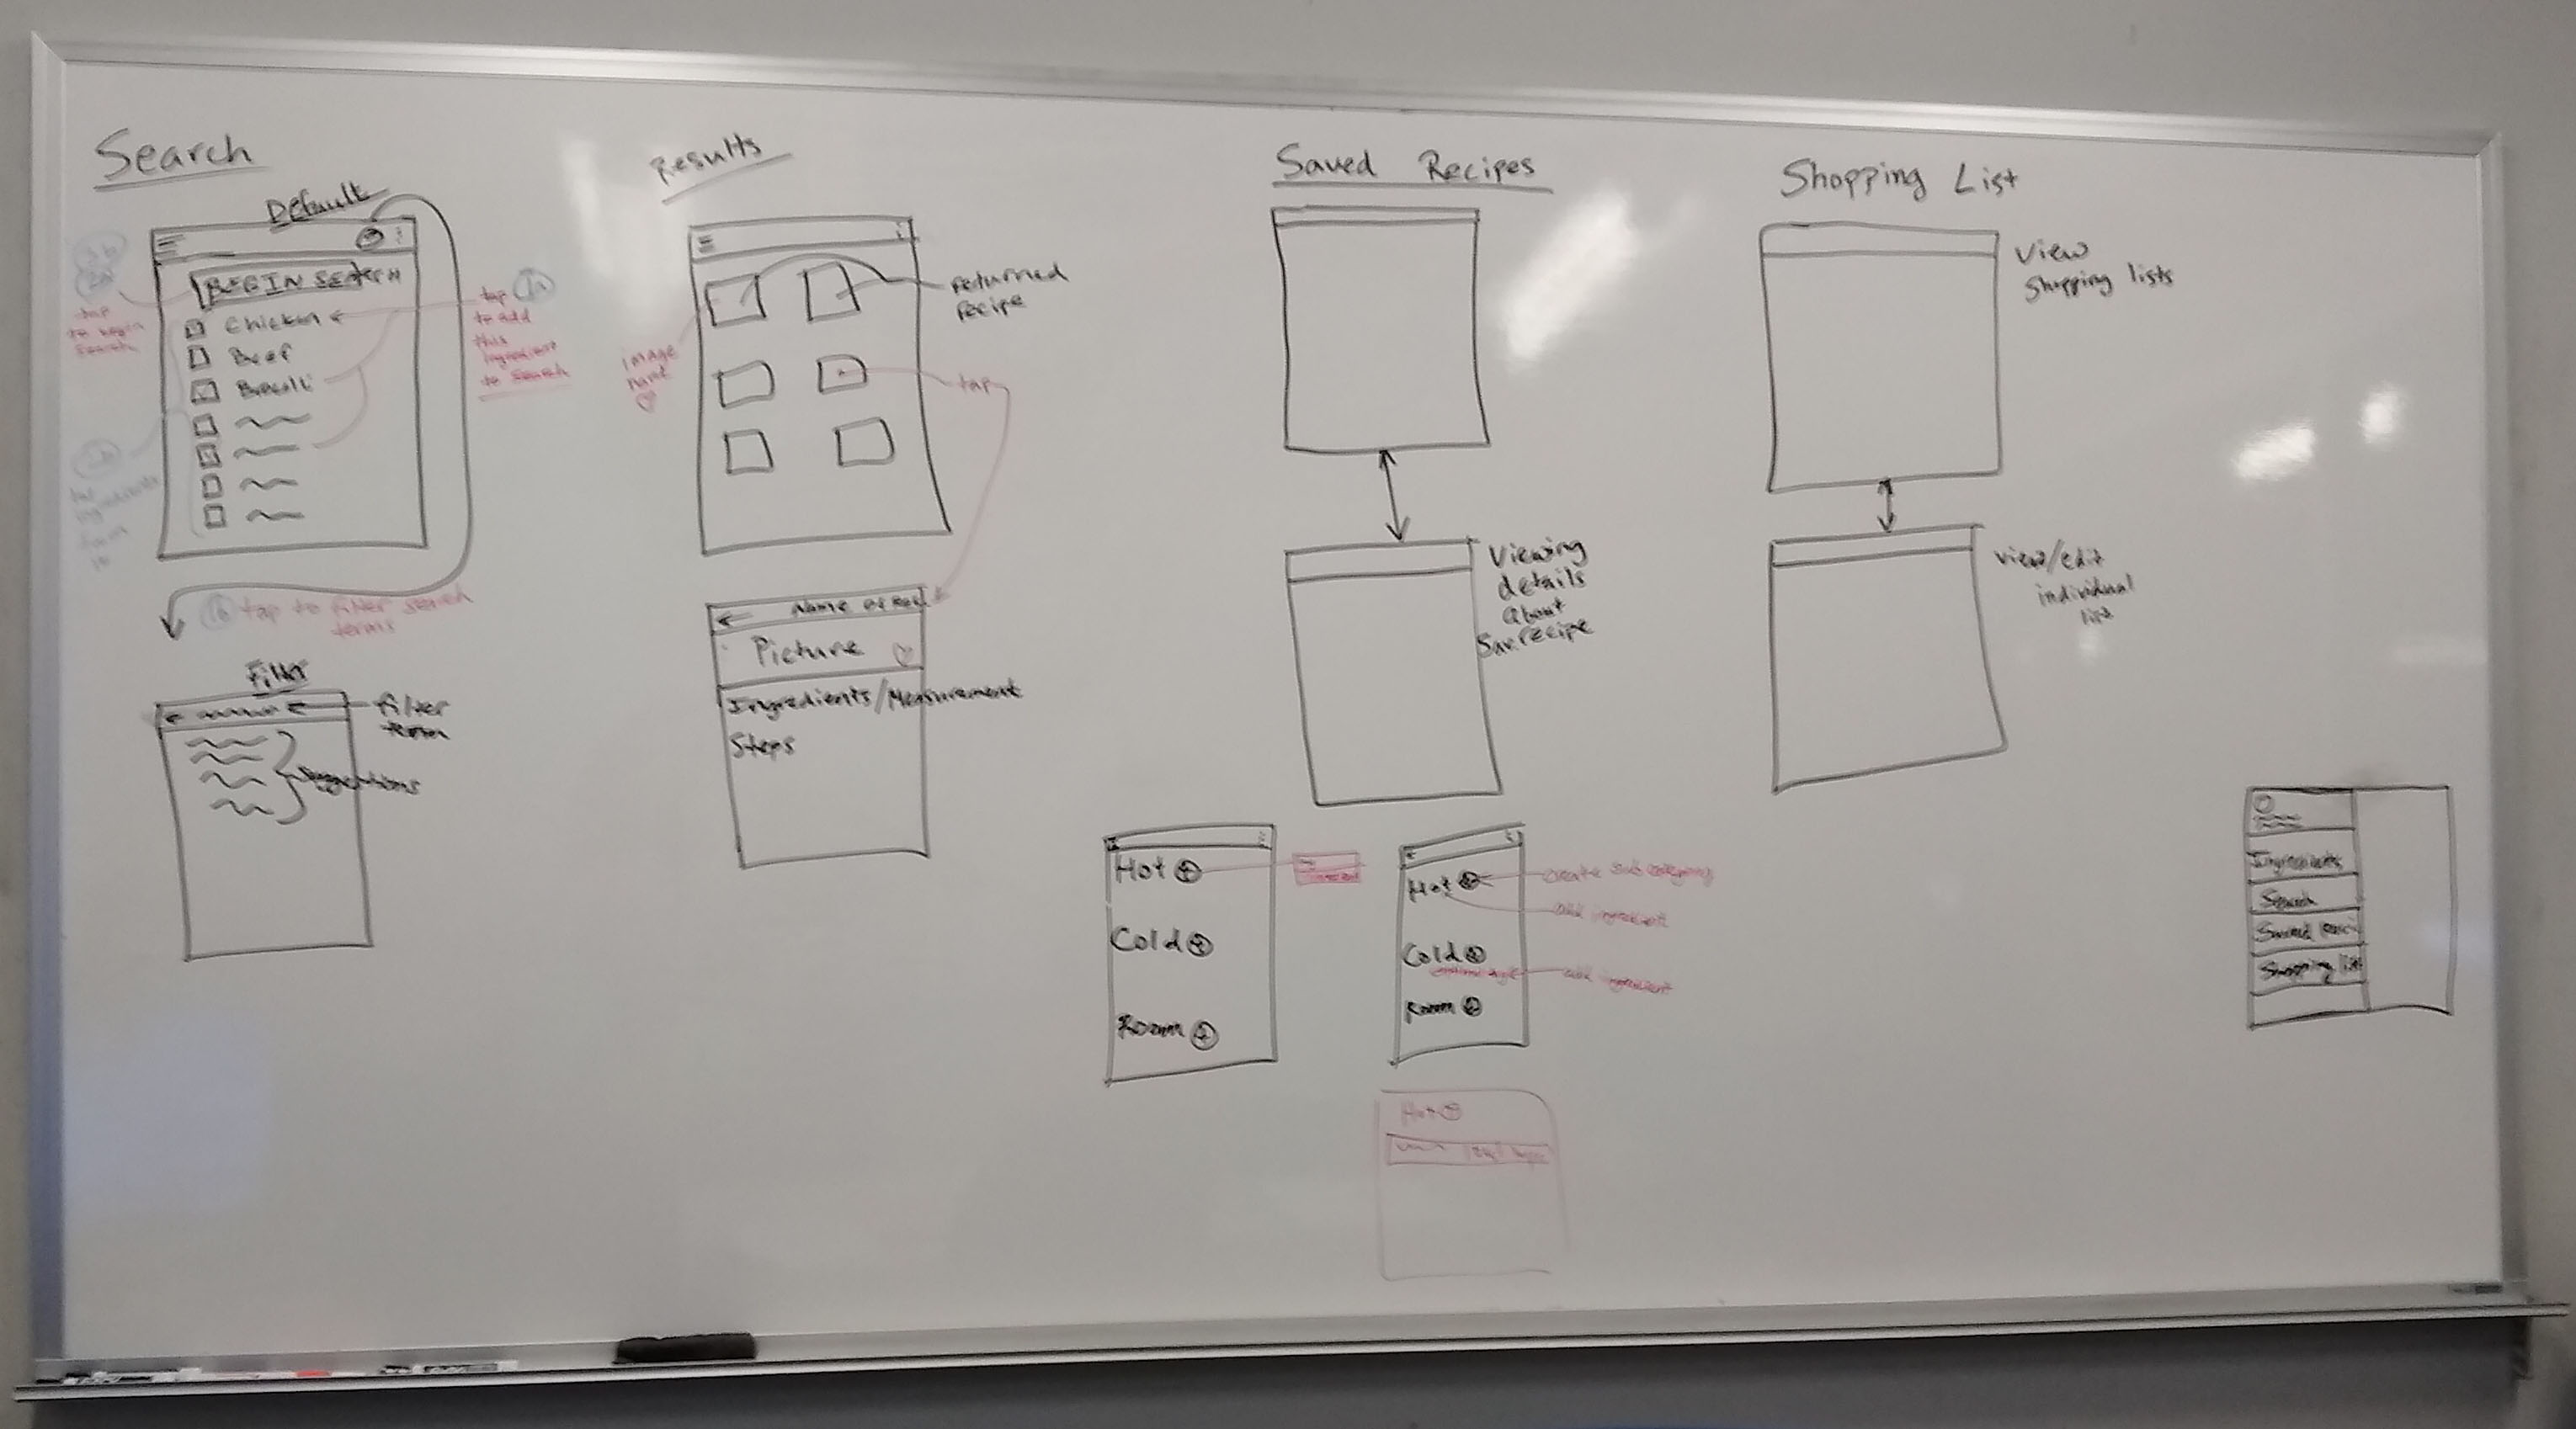 Search
Default
BEGIN SEARCH
Chicken
Beef
Brocolli
tap
to begin
search
1a
tap
to add
this
ingredient
to search
1b tap to filter search
terms
Filter
filter
term
Results
returned
recipe
image
name
tap
Name of Rec
Picture
Ingredients/Measurement
Steps
Saved Recipes
Viewing
details
about
Sav. recipe
Shopping List
View
Shopping lists
view/edit
individual
list
Hot
Cold
Room
Hot
Cold
Room
create sub category
add ingredient
add ingredient
Hot
Ingredients
Search
Saved
Shopping list